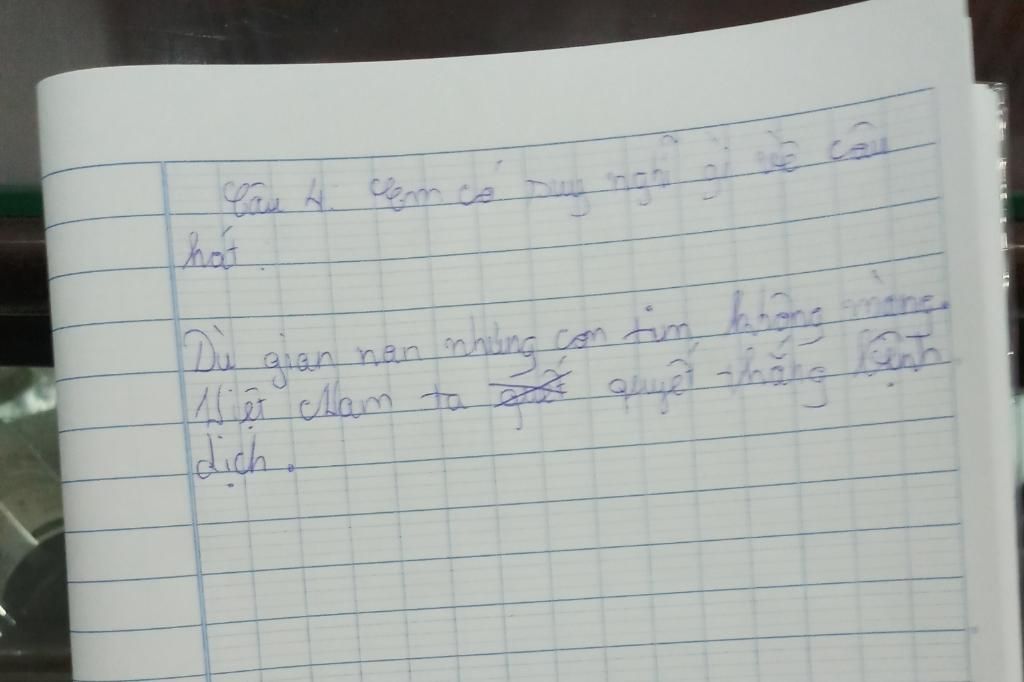 Câu 4. Em có suy nghĩ gì về câu
hát.
Dù gian nan nhưng con tim không màng.
Việt Nam ta quyết thắng bệnh
dịch.